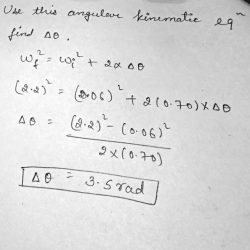 Use this angular kinematic eqn
find Δθ.
ωf² = ωi² + 2α Δθ
(2.2)² = (0.06)² + 2(0.70) × Δθ
Δθ = (2.2)² - (0.06)²
2×(0.70)
Δθ = 3.5 rad